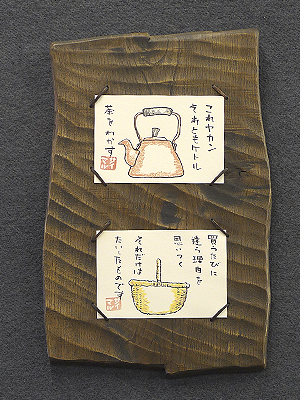 これヤカン
それともケトル
茶をわかす
買うたびに
違う理由を
思いつく
それだけは
たいしたものです